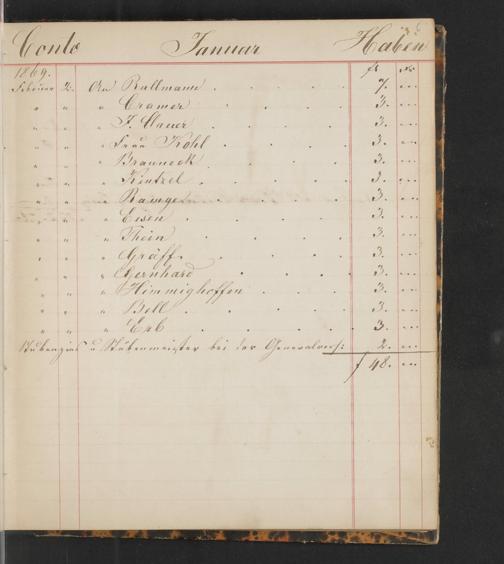 Conto Januar Haben
1869. fl. Kr.
Februar 2. An Rallmann . . . . . 7. ...
" " " Cramer . . . . 3. ...
" " " F. Clauer . . . . 3. ...
" " " Frau Kohl . . . . 3. ...
" " " Brauneck . . . . 3. ...
" " " Kintzel . . . . 3. ...
" " " Ramge . . . . 3. ...
" " " Eisen . . . . 3. ...
" " " Thein . . . . 3. ...
" " " Gräff . . . . 3. ...
" " " Gernhard . . . . 3. ...
" " " Himmighoffen . . . 3. ...
" " " Bell . . . . 3. ...
" " " Erb . . . . 3. ...
u Stubenmeister bei der Generalvers: 2. ...
f 48. ...